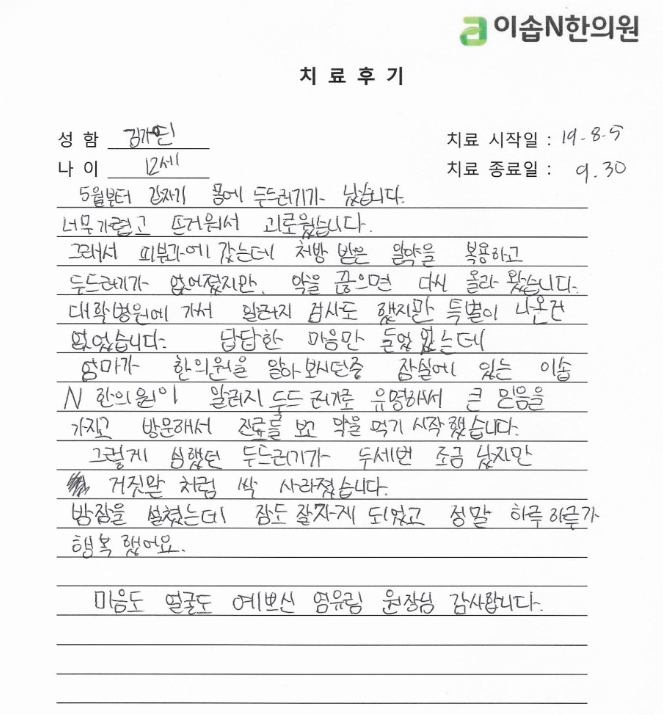 이솝N한의원
치료후기
성 함
치료 시작일 : 19-8-5
나 이 12세
치료 종료일 : 9.30
5월부터 갑자기 몸에 두드러기가 났습니다.
너무 가렵고 뜨거워서 괴로웠습니다.
그래서 피부과에 갔는데 처방 받은 알약을 복용하고
두드러기가 없어졌지만, 약을 끊으면 다시 올라 왔습니다.
대학병원에 가서 알러지 검사도 했지만 특별이 나온건
없었습니다. 답답한 마음만 들었었는데
엄마가 한의원을 알아보시던중 잠실에 있는 이솝
N 한의원이 알러지 두드러기로 유명해서 큰 믿음을
가지고 방문해서 진료를 보고 약을 먹기 시작했습니다.
그렇게 심했던 두드러기가 두세번 조금 났지만
거짓말 처럼 싹 사라졌습니다.
밤잠을 설쳤는데 잠도 잘자게 되었고 정말 하루하루가
행복했어요.
마음도 얼굴도 예쁘신 염유림 원장님 감사합니다.